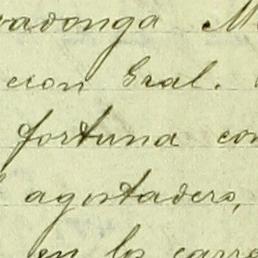 vadonga M
cion Gral.
fortuna con
agostadero,
en los carre